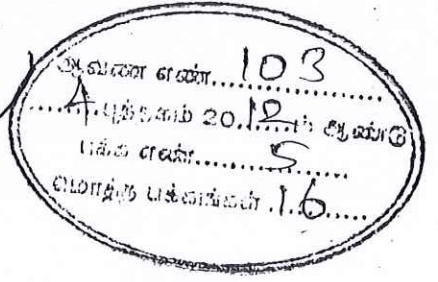 ஆவண எண்....103............
.....4..புத்தகம் 20.12..ம் ஆண்டு
பக்க எண்..........5........
மொத்த பக்கங்கள் .16.....